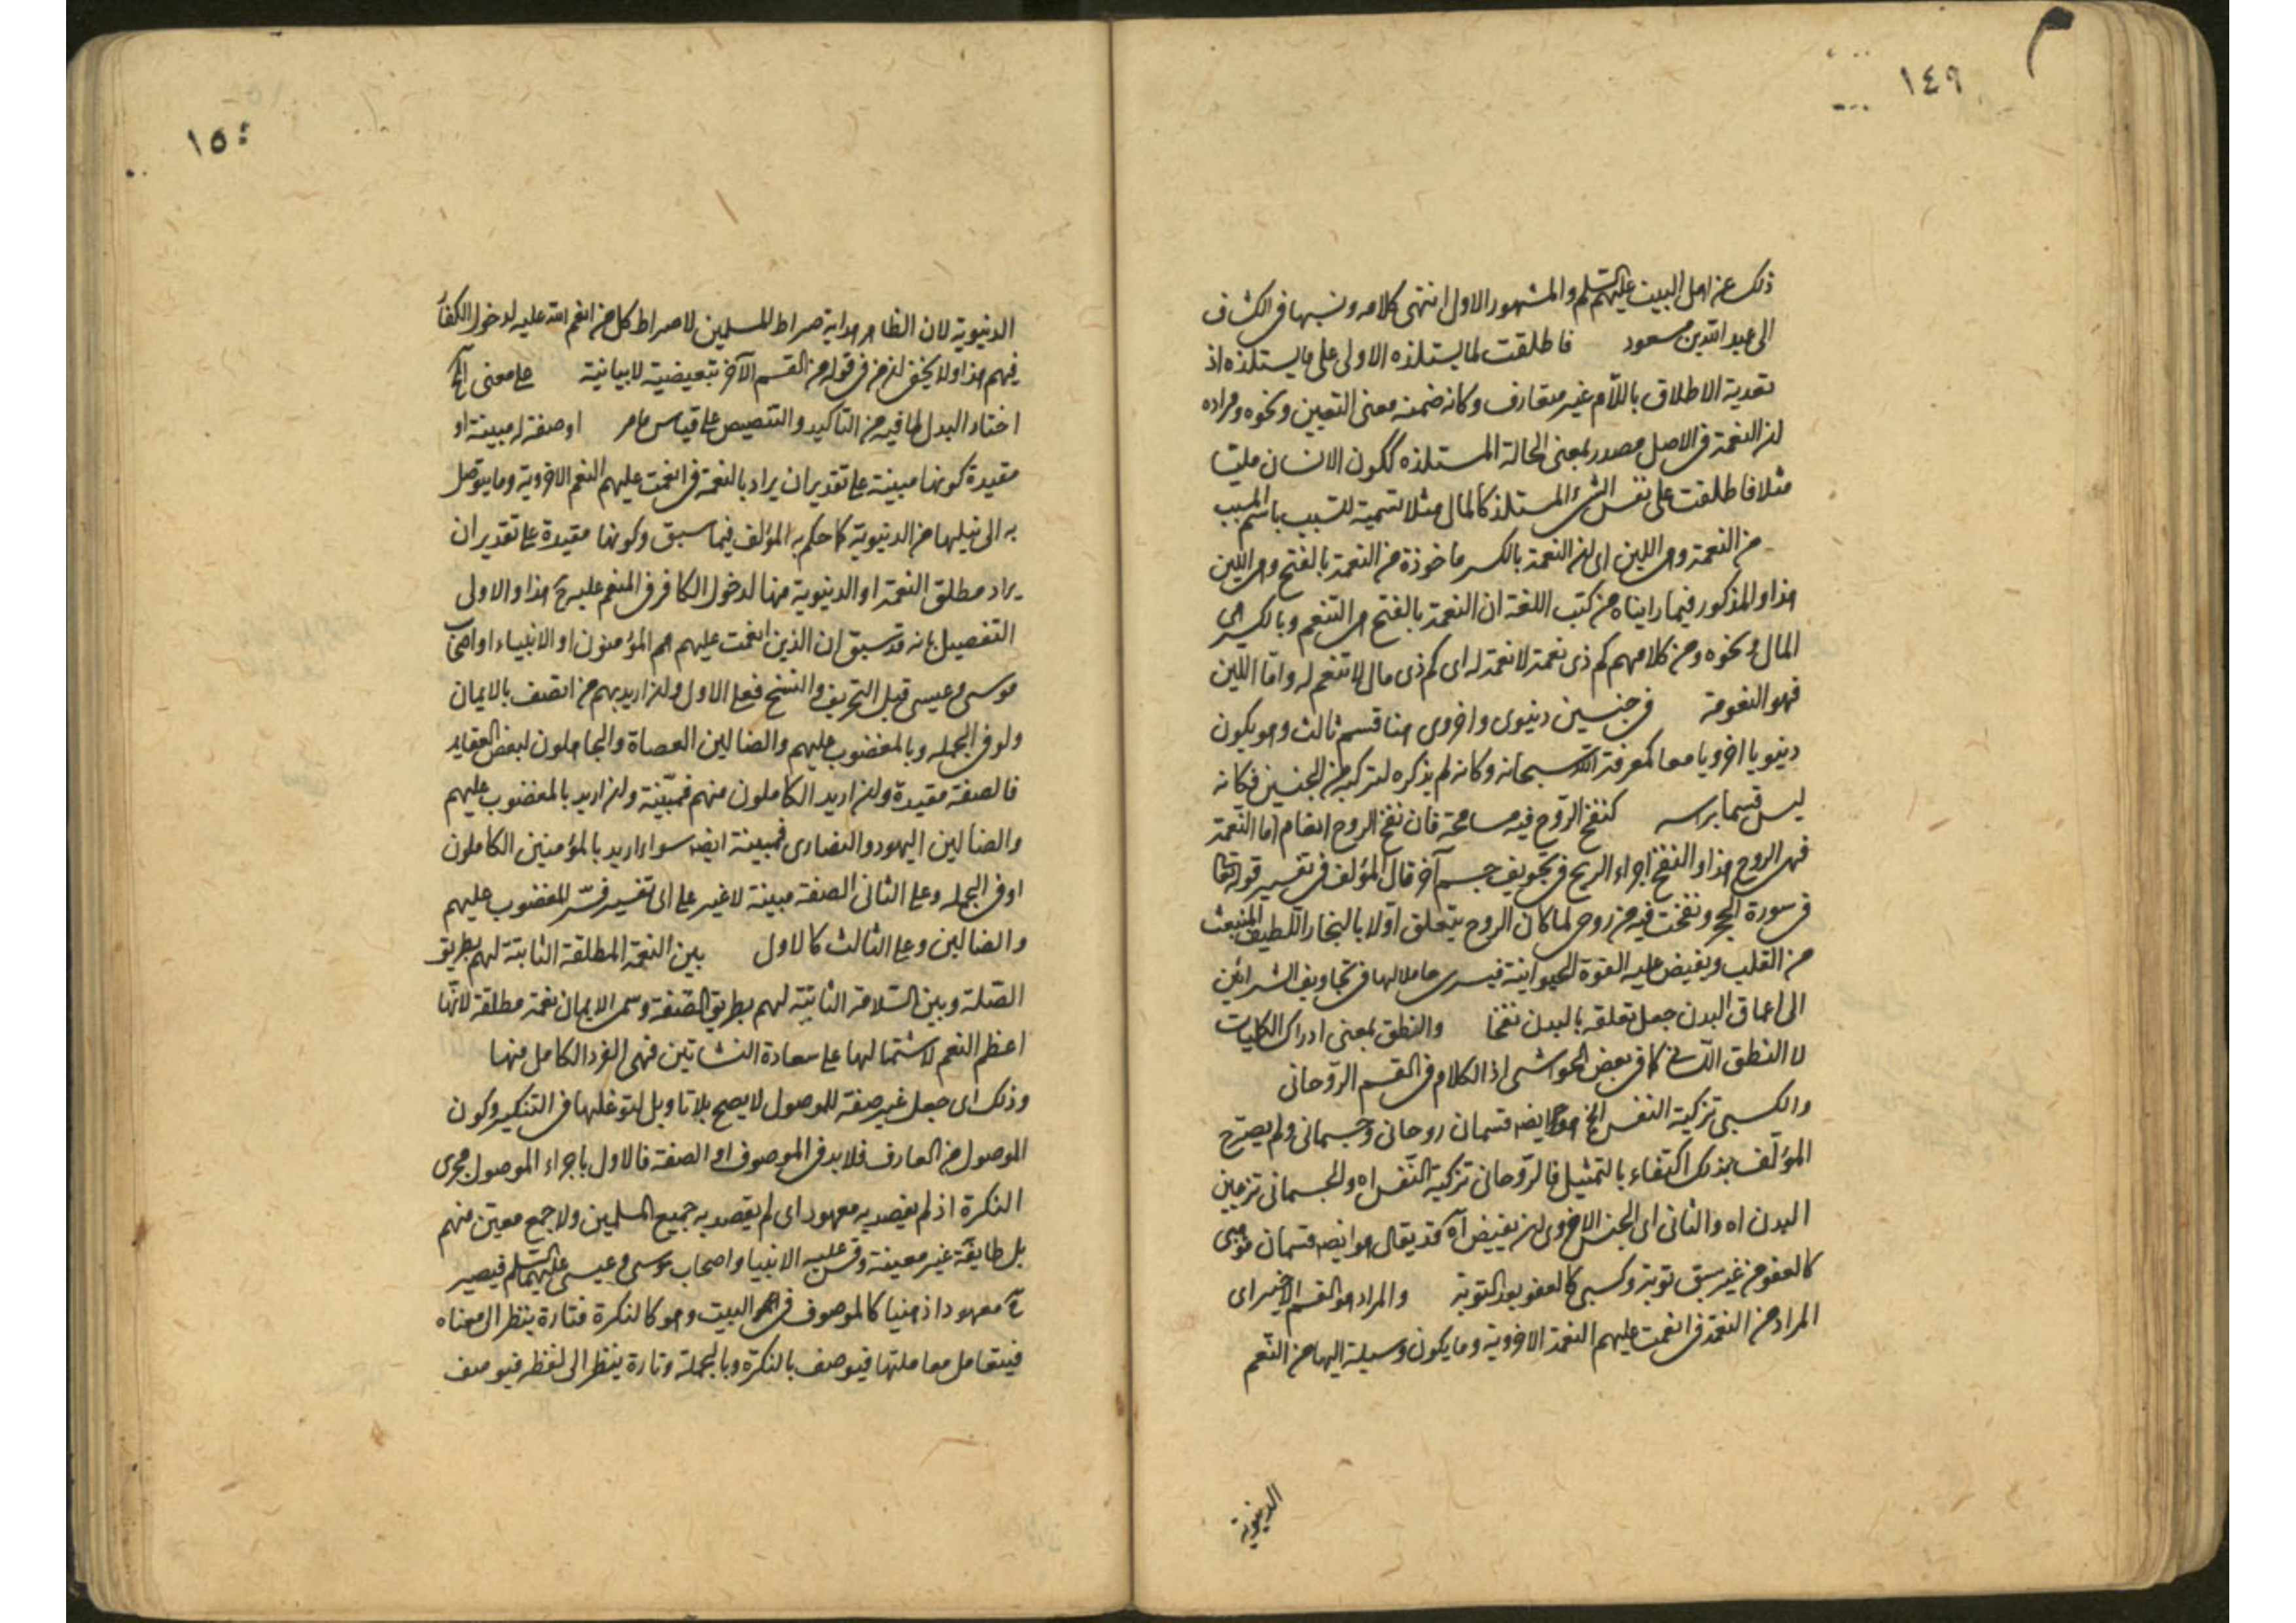 م
١٤٩
ذلك عن اهل البيت عليهم السلم والمشهور الاول انتهى كلامه ونسبها في الكشاف
الى عبد الله بن مسعود فاطلقت لما يستلذه الاولى على ما يستلذه اذ
تعدية الاطلاق باللام غير متعارف وكانه ضمنه معنى التعيين ونحوه ومراده
ان النعمة في الاصل مصدر بمعنى الحالة المستلذه ككون الانسان مليا
مثلا فاطلقت على نفس الشئ المستلذ كالمال مثلا تسمية للسبب باسم المسبب
من النعمة وهى اللين اى ان النعمة بالكسر ماخوذة من النعمة بالفتح وهى اللين
هذا والمذكور فيما رايناه من كتب اللغة ان النعمة بالفتح هى التنعم وبالكسر هى
المال ونحوه ومن كلامهم كم ذى نعمة لا نعمة له اى كم ذى مال لا تنعم له واما اللين
فهو النعومة في جنسين دنيوى واخروى هنا قسم ثالث وهو يكون
دنيويا اخرويا معا كمعرفة الله سبحانه وكانه لم يذكره لتركبه من الجنسين فكانه
ليس قسما براسه كنفخ الروح فيه مسامحة فان نفخ الروح انعام اما النعمة
فهى الروح هذا والنفخ اجراء الريح في تجويف جسم آخر قال المؤلف في تفسير قوله تعالى
في سورة الحجر ونفخت فيه من روحى لما كان الروح يتعلق اولا بالبخار اللطيف المنبعث
من القلب ويفيض عليه القوة الحيوانية فيسرى حاملا لها في تجاويف الشرائين
الى اعماق البدن جعل تعلقه بالبدن نفخا والنطق بمعنى ادراك الكليات
لا النطق اللسانى كما في بعض الحواشى اذ الكلام في القسم الروحانى
والكسبى تزكية النفس الخ هو ايضه قسمان روحانى وجسمانى ولم يصرح
المؤلف بذلك اكتفاء بالتمثيل فالروحانى تزكية النفس اه والجسمانى تزيين
البدن اه والثانى اى الجنس الاخروى ان يفيض آه قد يقال هو ايضه قسمان موهبى
كالعفو من غير سبق توبة وكسبى كالعفو بعد التوبة والمراد هو القسم الاخير اى
المراد من النعمة في انعمت عليهم النعمة الاخروية وما يكون وسيلة اليها من النعم
الدنيوية
١٥٠
الدنيوية لان الظاهر هداية صراط المسلمين لا صراط كل من انعم الله عليه لدخول الكفار
فيهم هذا ولا يخفى ان من في قوله من القسم الآخر تبعيضية لا بيانية على معنى الخ
اختار البدل لما فيه من التاكيد والتنصيص على قياس ما مر او صفة له مبينة او
مقيدة كونها مبينة على تقدير ان يراد بالنعمة في انعمت عليهم النعم الاخروية وما يتوصل
به الى نيلها من الدنيوية كما حكم به المؤلف فيما سبق وكونها مقيدة على تقدير ان
يراد مطلق النعمة او الدنيوية منها لدخول الكافر في المنعم عليهم ح هذا والاولى
التفصيل بانه قد سبق ان الذين انعمت عليهم هم المؤمنون او الانبياء او اصحاب
موسى وعيسى قبل التحريف والنسخ فعلى الاول ان اريد بهم من اتصف بالايمان
ولو في الجمله وبالمغضوب عليهم والضالين العصاة والجاهلون لبعض العقايد
فالصفة مقيدة وان اريد الكاملون منهم فمبينة وان اريد بالمغضوب عليهم
والضالين اليهود والنصارى فمبينة ايضه سواء اريد بالمؤمنين الكاملون
او في الجمله وعلى الثانى الصفة مبينة لا غير على اى تفسير فسر المغضوب عليهم
والضالين وعلى الثالث كالاول بين النعمة المطلقة الثابتة لهم بطريق
الصلة وبين السلامة الثابتة لهم بطريق الصفة وسمى الايمان نعمة مطلقة لانها
اعظم النعم لاشتمالها على سعادة النشاتين فهى الفرد الكامل منها
وذلك اى جعل غير صفة للموصول لا يصح بلا تاويل لتوغلها في التنكير وكون
الموصول من المعارف فلا بد في الموصوف او الصفة فالاول باجراء الموصول مجرى
النكرة اذ لم يقصد به معهود اى لم يقصد به جميع المسلمين ولا جمع معين منهم
بل طايفة غير معينة وقس عليه الانبيا واصحاب موسى وعيسى عليهما السلم فيصير
ح معهودا ذهنيا كالموصوف في البيت وهو كالنكرة فتارة ينظر الى معناه
فيتعامل معاملتها فيوصف بالنكرة وبالجملة وتارة ينظر الى لفظه فيوصف